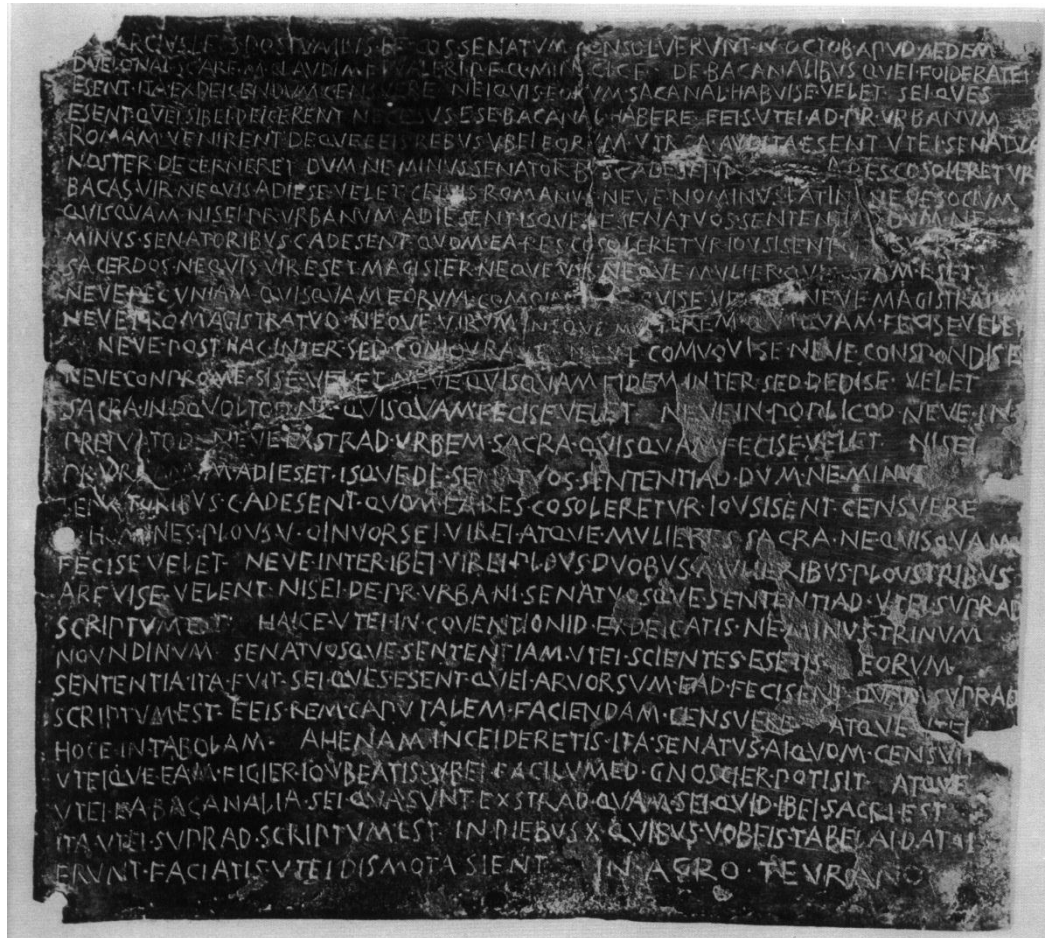 POSTVMIVS COS SENATVM CONSOLVERVNT·N·OCTOB·APVD·AEDEM
DVELONAI·SC·ARF·M·CLAVDI·M·F VALERI·P·F·Q·MINVCI·C·F· DE·BACANALIBVS·QVEI·FOIDERATEI
ESENT·ITA·EXDEICENDVM·CENSVERE NEIQVIS·EORVM·SACANAL·HABVISE·VELET SEI·QVES
ESENT·QVEI·SIBEI·DEICERENT NECESVS·ESE·BACANAL·HABERE·EEIS·VTEI·AD·PR·VRBANVM
ROMAM·VENIRENT DEQVE·EEIS·REBVS VBEI·EORVM·VTR·A·AVDITA·ESENT VTEI·SENATVS
NOSTER·DECERNERET DVM·NE·MINVS·SENATORBVS·C·ADESENT RES·COSOLERETVR
BACAS·VIR·NEQVIS·ADIESE·VELET CEIVIS·ROMANVS NEVE·NOMINVS·LATINI NEVE·SOCIVM
QVISQVAM NISEI·PR·VRBANVM·ADIESENT ISQVE·DE·SENATVOS·SENTENTIAD DVM·NE
MINVS·SENATORIBVS·C·ADESENT·QVOM·EA·RES·COSOLERETVR·IOVSISENT
SACERDOS·NEQVIS·VIR·ESET·MAGISTER·NEQVE·VIR·NEQVE·MVLIER·QVISQVAM·ESET
NEVE·PECVNIAM·QVISQVAM·EORVM·COMOINEM VELET NEVE·MAGISTRATVM
NEVE·PRO·MAGISTRATVD·NEQVE·VIRVM NEQVE MVLIEREM·QVIQVAM·FECISE·VELET
NEVE·POST·HAC·INTER·SED·CONIOVRASE NEVE COMVOVISE·NEVE·CONSPONDISE
NEVE·CONPROMESISE·VELET NEVE·QVISQVAM·FIDEM·INTER·SED·DEDISE·VELET
SACRA·IN·DQVOLTOD·NE·QVISQVAM·FECISE·VELET NEVE·IN·POPLICOD·NEVE·IN
PREIVATOD·NEVE·EXSTRAD·VRBEM·SACRA·QVISQVAM·FECISE·VELET NISEI
PR·VRBANVM·ADIESET·ISQVE·DE·SENATVOS·SENTENTIAD·DVM·NE·MINVS
SENATORIBVS·C·ADESENT·QVOM·EA·RES·COSOLERETVR·IOVSISENT·CENSVERE
HOMINES·PLOVS·V·OINVORSEI·VIREI·ATQVE·MVLIERES SACRA·NE·QVISQVAM
FECISE·VELET· NEVE·INTER·IBEI·VIREI·PLOVS·DVOBVS·MVLIERIBVS·PLOVS·TRIBVS
ARFVISE·VELENT·NISEI·DE·PR·VRBANI·SENATVOSQVE·SENTENTIAD·VTEI·SVPRAD
SCRIPTVM·EST· HAICE·VTEI·IN·COVENTIONID·EXDEICATIS·NE·MINVS·TRINVM
NOVNDINVM· SENATVOSQVE·SENTENTIAM·VTEI·SCIENTES·ESETIS· EORVM·
SENTENTIA·ITA·FVIT·SEI·QVES·ESENT·QVEI·ARVORSVM·EAD·FECISENT·QVAM·SVPRAD
SCRIPTVM·EST·EEIS·REM·CAPVTALEM·FACIENDAM·CENSVERE ATQVE·VTEI
HOCE·IN·TABOLAM· AHENAM·INCEIDERETIS·ITA·SENATVS·AIQVOM·CENSVIT
VTEIQVE·EAM·FIGIER·IOVBEATIS·VBEI·FACILVMED·GNOSCIER·POTISIT ATQVE
VTEI·EA·BACANALIA·SEI·QVA·SVNT·EXSTRAD·QVAM·SEI·QVID·IBEI·SACRI·EST
ITA·VTEI·SVPRAD·SCRIPTVM·EST IN·DIEBVS·X·QVIBVS·VOBEIS·TABELAI·DATAI
ERVNT·FACIATIS·VTEI·DISMOTA·SIENT IN·AGRO·TEVRANO